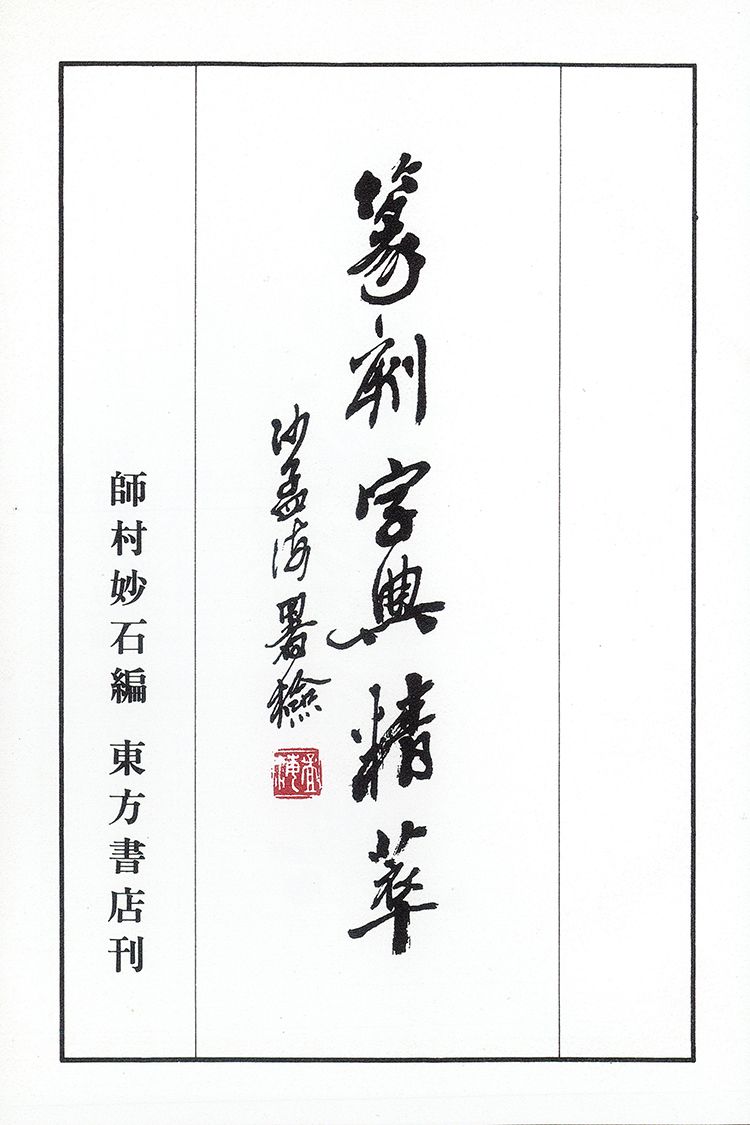 篆刻字典精萃
沙孟海署檢
孟海
師村妙石編 東方書店刊